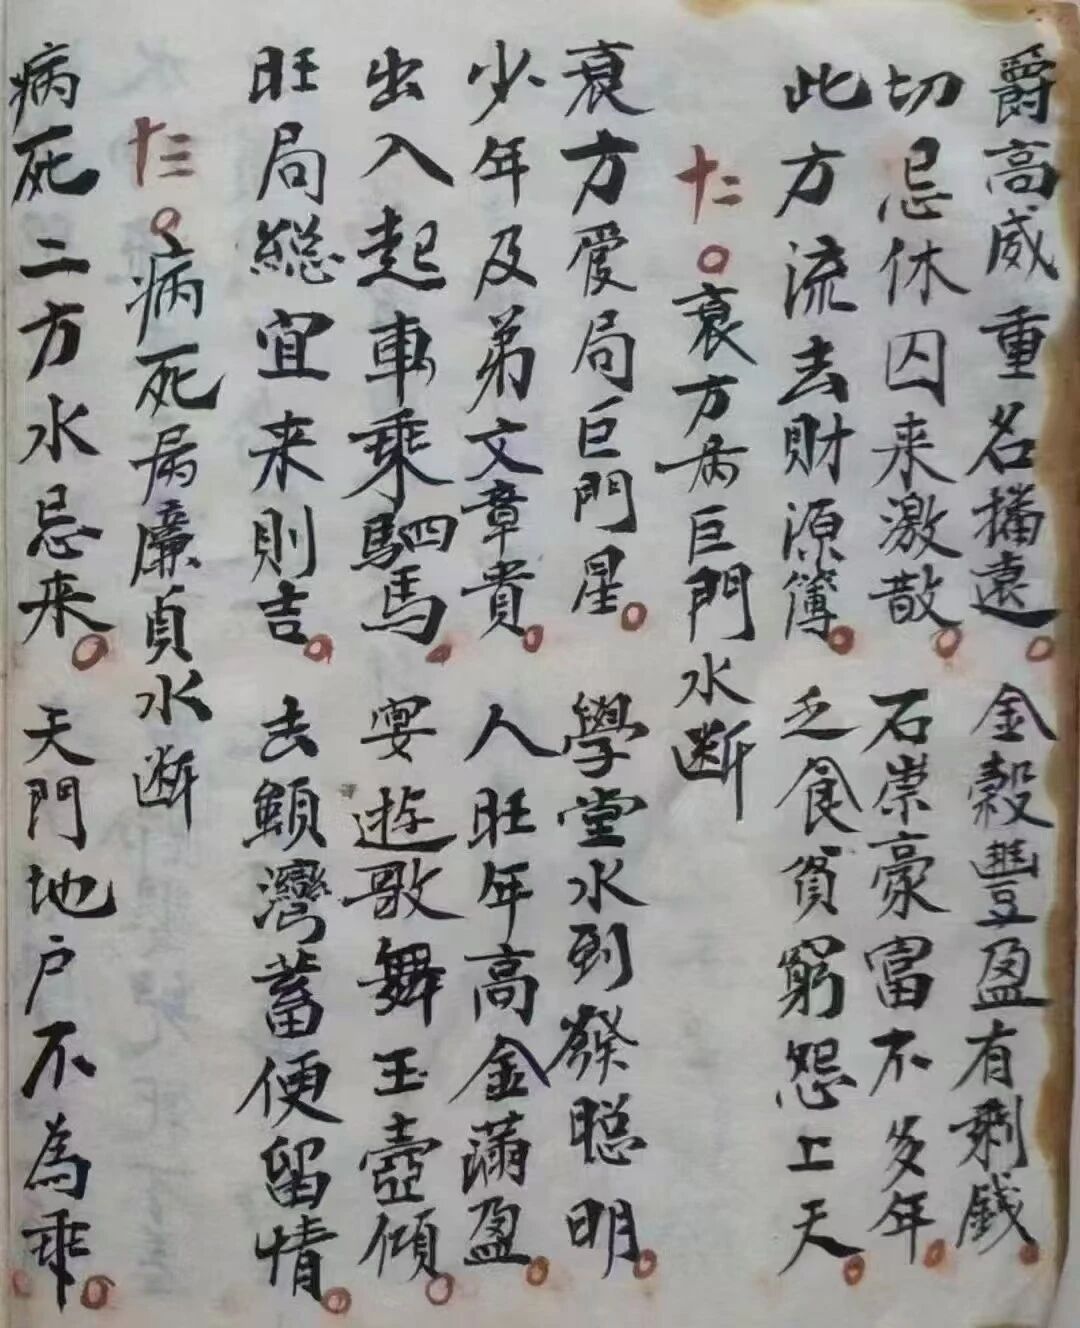 爵高威重名播遠。金穀豊盈有剩錢。
切忌休囚来激散。石崇豪富不多年。
此方流去財源簿。乏食貧窮怨上天。
十二。衰方病巨門水断
衰方爱局巨門星。學堂水到發聪明。
少年及弟文章貴。人旺年高金滿盈。
出入起車乘駟馬。宴遊歌舞玉壺傾。
旺局総宜来則吉。去顖灣蓄便留情。
十三。病死病廉貞水断
病死二方水忌来。天門地户不為乖。